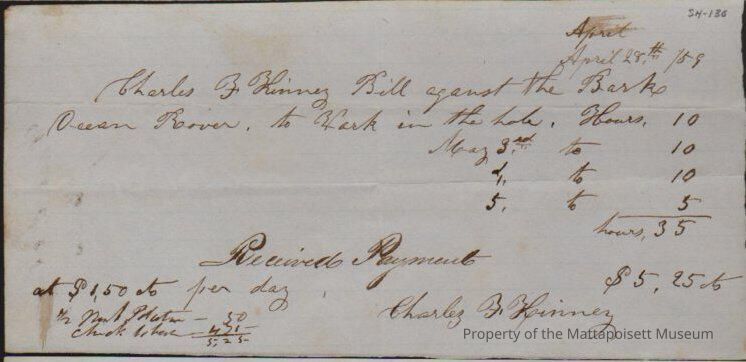 SH-136
April
April 28.th /59
Charles F Kinney Bill against the Bark
Ocean Rover. to Wark in the hole. Hours, 10
May 3.rd to 10
4, to 10
5, to 5
hours, 35
Received Payment
$5,25 ct
at $1,50 ct per day
Charles F. Kinney
1/2 - 50
Check 4 75
5.25
Property of the Mattapoisett Museum